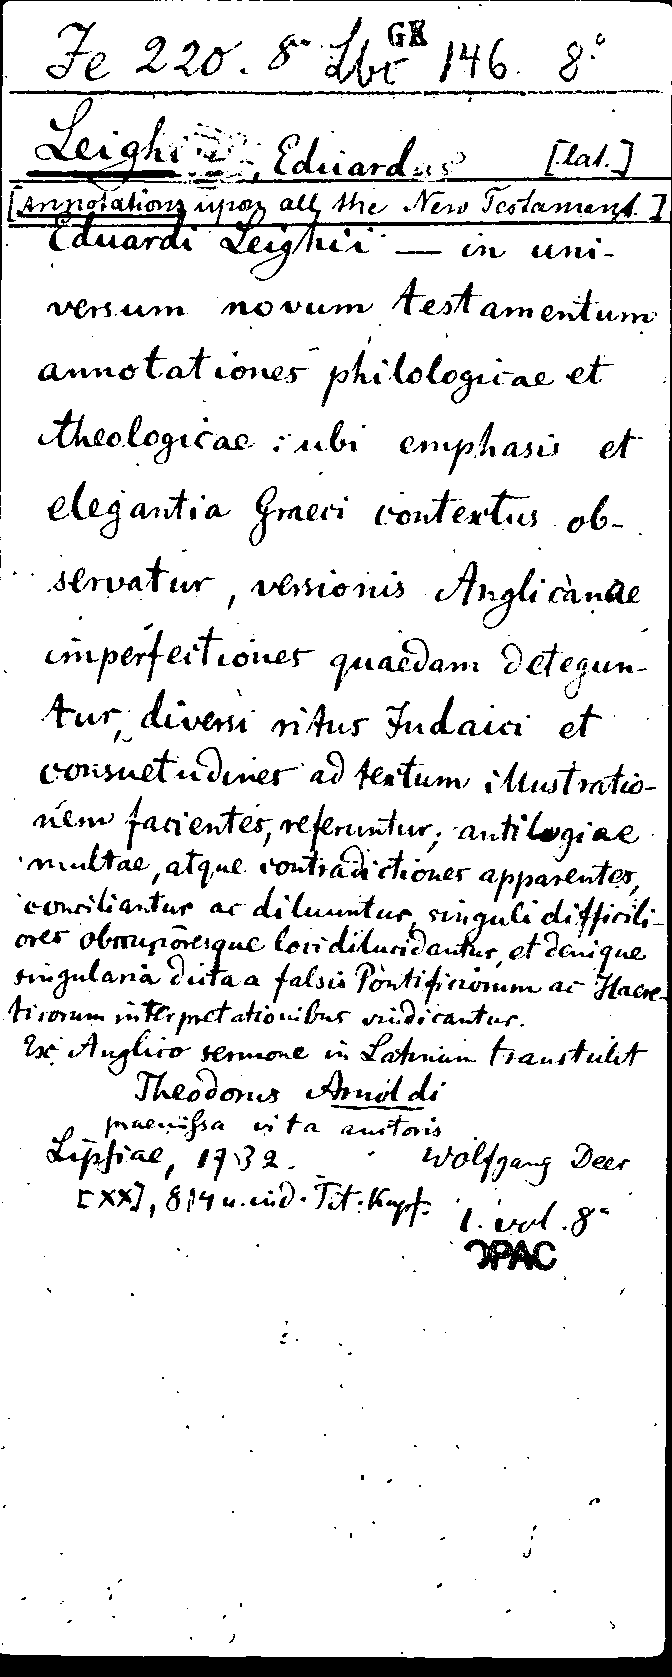 Fe 220. 8° Lbc GK 146. 8°
Leighi, Eduardus [lat.]
[Annotations upon all the New Testament.]
Eduardi Leighii — in uni-
versum novum testamentum
annotationes philologicae et
theologicae : ubi emphasis et
elegantia Graeci contextus ob-
servatur, versionis Anglicanae
imperfectiones quaedam detegun-
tur, diversi ritus Judaici et
consuetudines ad textum illustratio-
nem facientes, referuntur; antilogiae
multae, atque contradictiones apparentes,
conciliantur ac diluuntur, singuli difficili-
ores obscurioresque loci dilucidantur, et denique
singularia dicta a falsis Pontificiorum ac Haere-
ticorum interpretationibus vindicantur.
Ex Anglico sermone in Latinum transtulit
Theodorus Arnoldi
praemissa vita auctoris
Lipsiae, 1732. Wolfgang Deer
[XX], 814 u. ind. Tit. Kupf.
1. vol. 8°
OPAC